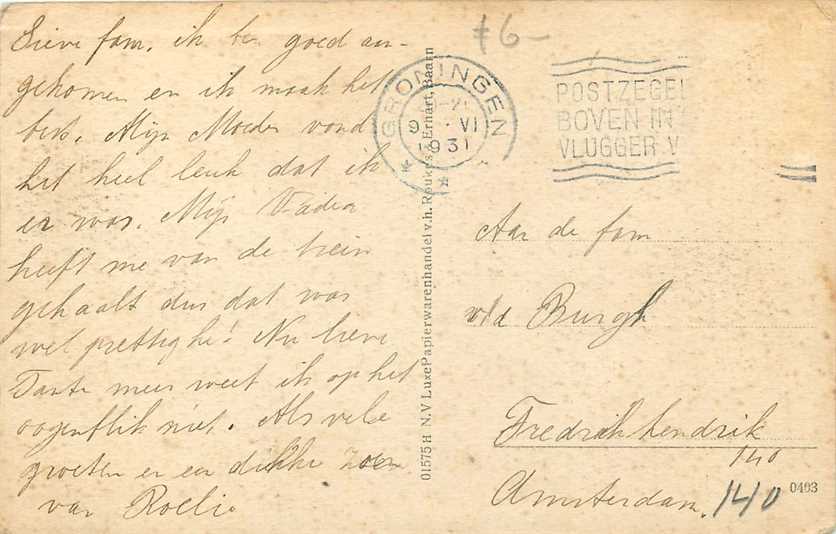 Lieve fam. ik ben goed an-
gekomen en ik maak het
best. Mijn Moeder vond
het heel leuk dat ik
er was. Mijn Vader
heeft me van de trein
gehaalt dus dat was
wel prettighe! Nu lieve
Tante meer weet ik op het
oogenblik niet. Als vele
groeten en een dikke zoen
van Roelie
f6-
GRONINGEN
9 VI
1931
POSTZEGEL
BOVEN IN
VLUGGER V
01575 H N.V Luxe Papierwarenhandel v.h. Roukes & Erhart, Baarn
Aan de fam
v/d Burgh
Fredrik hendrik
140
Amsterdam. 140
0403